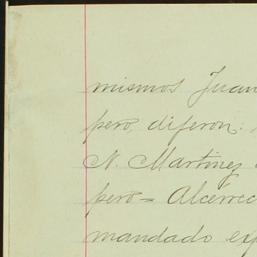 mismos Juan
pero, diferon:
N. Martinez
pero = Alcerrec
mandado exp